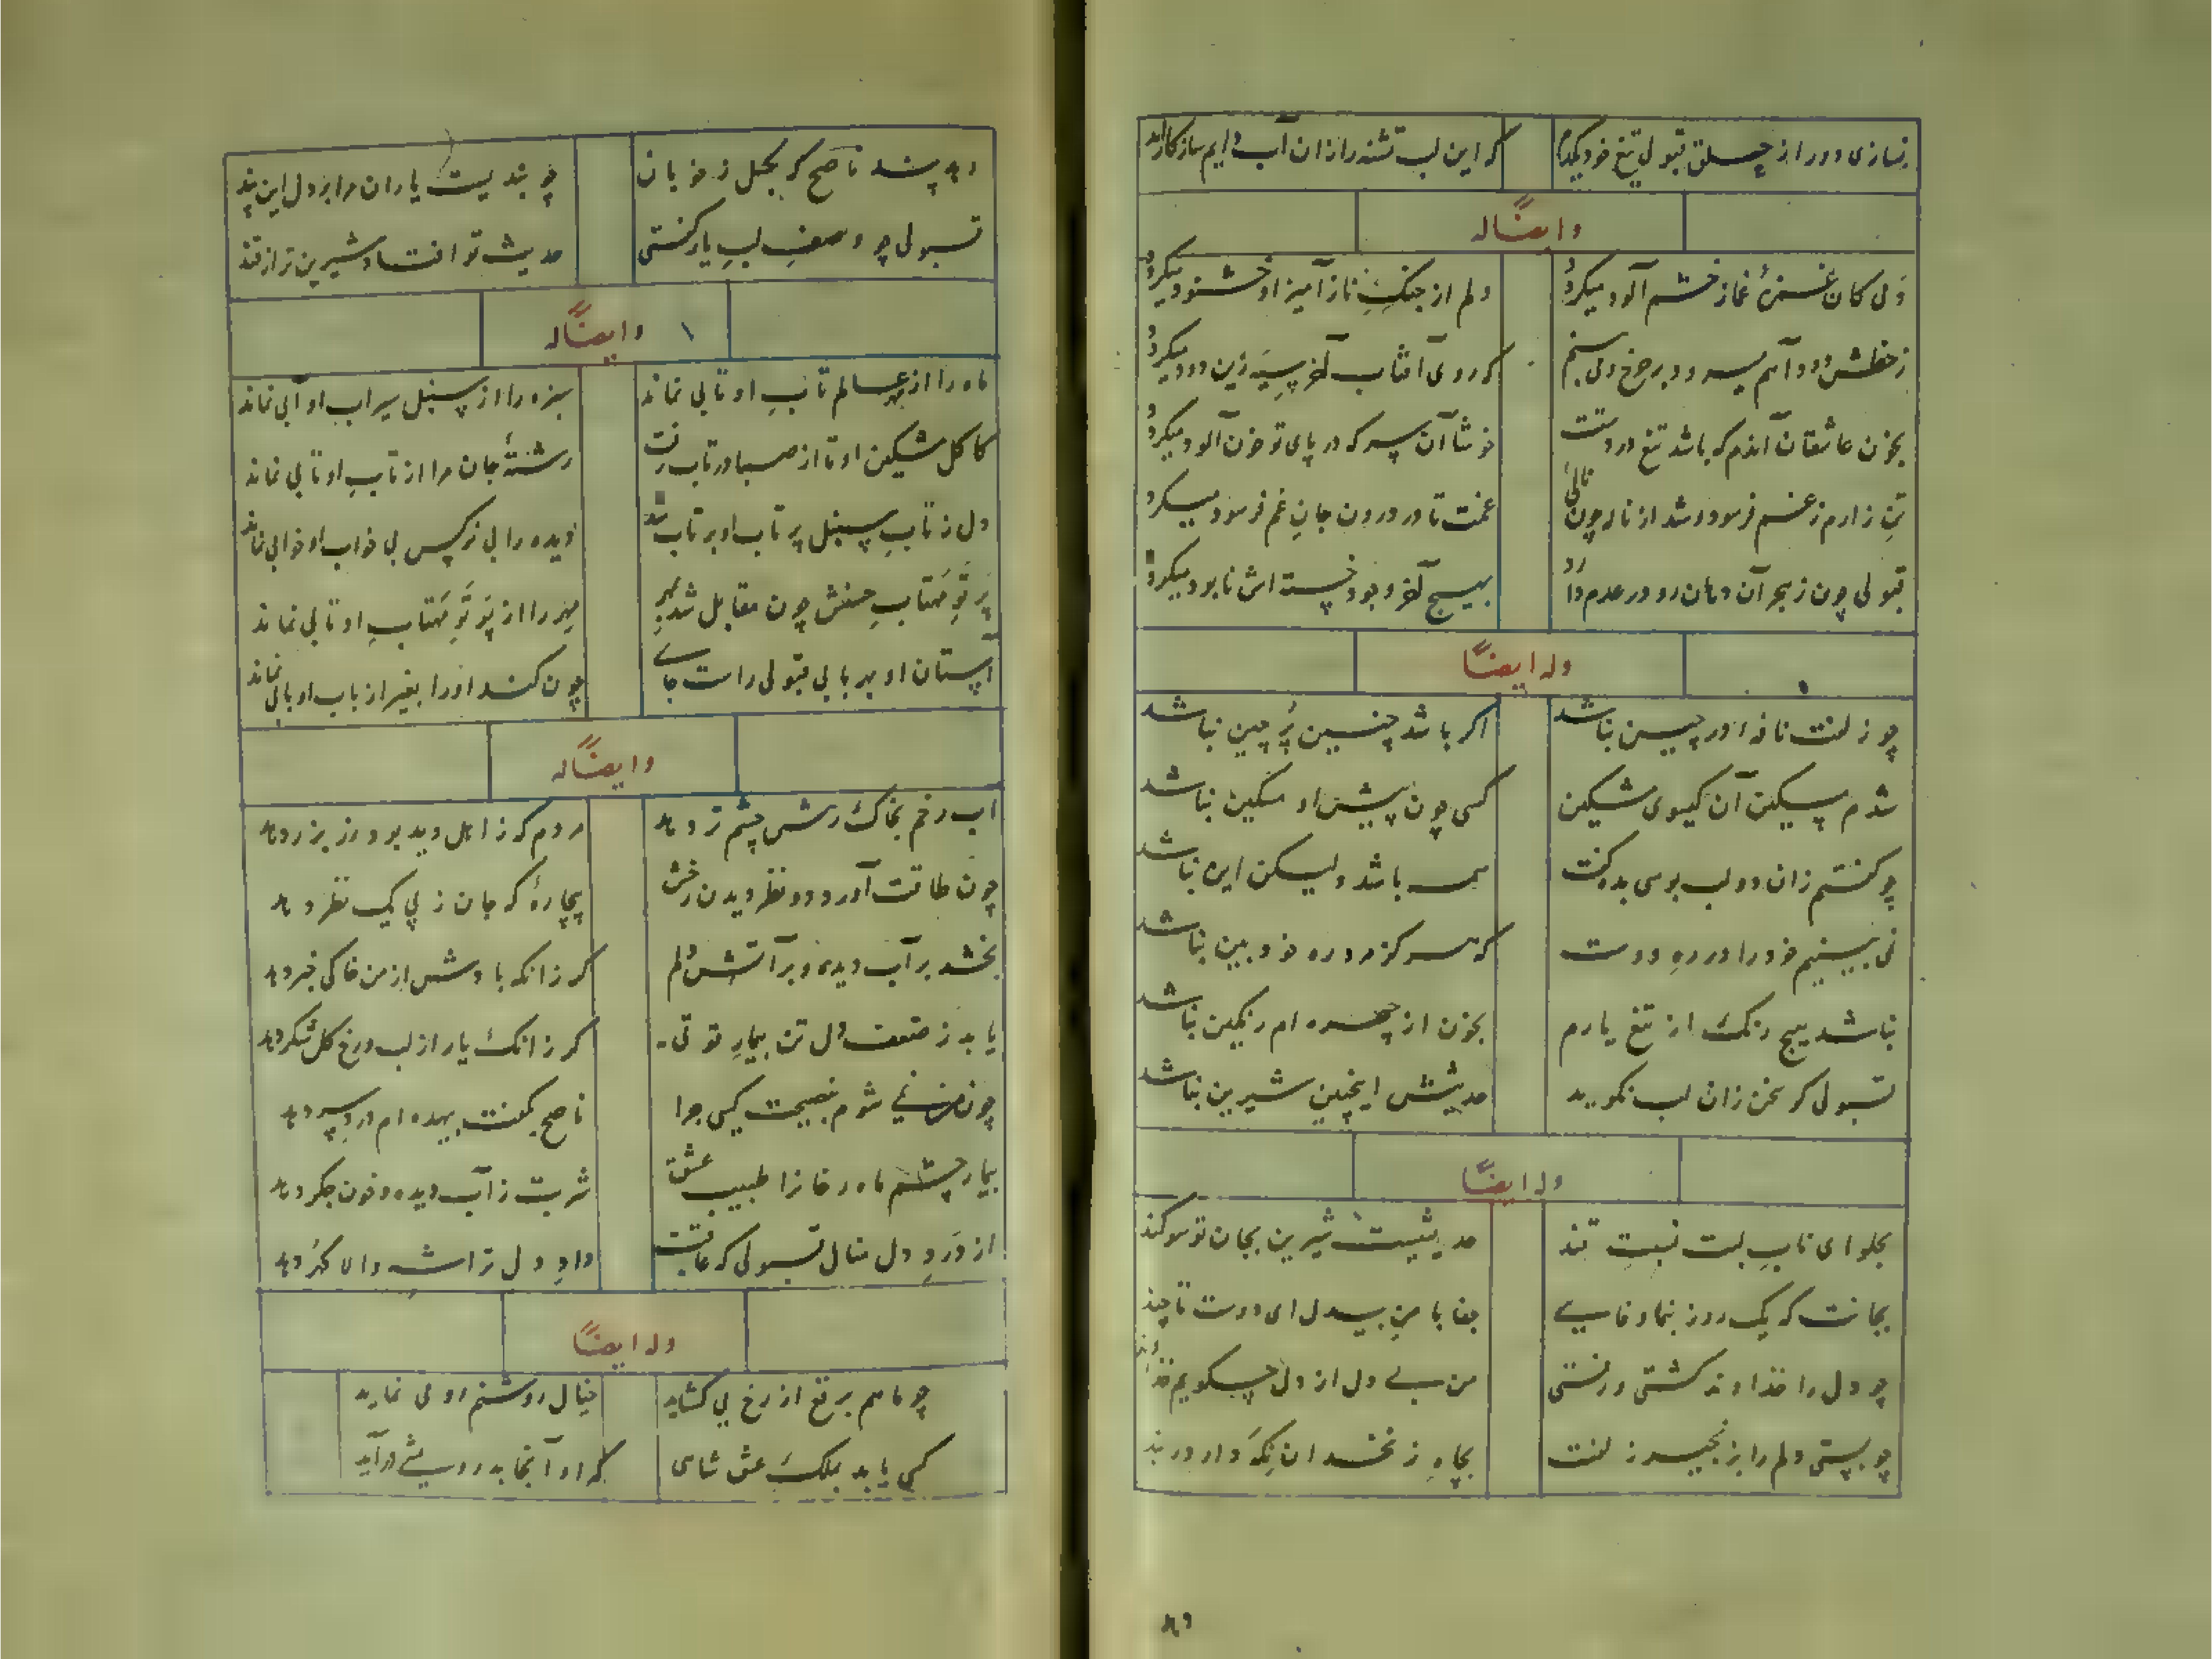 که این لب تشنه را زان آب دایم سازگار آید
وایضاً له
ولی کان غمزهٔ غماز خشم آلود میکرد
دلم از جنگ ناز آمیز او خشنود میکرد
که روی آفتاب آخر سیه زین دود میکرد
بخون عاشقان آندم که باشد تیغ در دستت
خوشا آن سر که در پای تو خون آلود میکرد
تن زارم ز غم فرسوده شد از ناله چون نالی
غمت تا در درون جان غم فرسود میکرد
قبولی چون ز هجر آن دهان رو در عدم دارد
وله ایضاً
چو زلفت نافه ای در چین نباشد
اگر باشد چنین پُر چین نباشد
شدم مسکین آن گیسوی مشکین
کسی چون پیش او مسکین نباشد
چو گفتم زان دو لب بوسی بده گفت
همی باشد ولیکن این نباشد
نمی بینیم خود را در ره دوست
که هرگز مرد ره خود بین نباشد
نباشد هیچ رنگ از تیغ یارم
بخون از چهره ام رنگین نباشد
قبولی گر سخن زان لب نگوید
حدیثش اینچنین شیرین نباشد
وله ایضاً
بحلوای ناب لبت نسبت قند
حدیثیست شیرین بجان تو سوگند
بجانت که یک روز بنما وفایی
جفا با من بیدل ای دوست تا چند
چو دل را خداوند گشتی و رفتی
من بی دل از دل چه گویم خداوند
چو بستی دلم را بزنجیر زلفت
بچاه زنخدان نگه دار در بند
دهد پند ناصح که بگسل ز خوبان
چو بندیست یاران مرا بر دل این پند
قبولی چو وصف لب یار گفتی
حدیث تو افتاد شیرین تر از قند
وایضاً له
ماه را از عالم تاب او تابی نماند
سبزه را از سنبل سیراب او آبی نماند
کاکل مشکین او تا از صبا در تاب رفت
رشتهٔ جان مرا از تاب او تابی نماند
دل ز تاب سنبل پر تاب او بر تاب شد
دیده را بی نرگس بی خواب او خوابی نماند
پرتو مهتاب حسنش چون مقابل شد بمهر
مهر را از پرتو مهتاب او تابی نماند
آستان او بهر بابی قبولی راست جای
چون کند او را بغیر از باب او بابی نماند
وایضاً له
آب رخم بخاک رهش چشم تر دهد
مردم که ز اهل دید بود زر بزر دهد
چون طاقت آورد دو نظر دیدن رخش
بیچارهٔ که جان ز پی یک نظر دهد
بخشد بر آب دیده و بر آتش دلم
گر زانکه بادش از من خاکی خبر دهد
گر زانک یار از لب و رخ گل شکر دهد
ناصح بگفت بیهده ام درد سر دهد
بیمار چشم ماه رخان را طبیب عشق
شربت ز آب دیده و خون جگر دهد
از درد دل منال قبولی که عاقبت
وله ایضاً
چو ماهم برقع از رخ بر گشاید
خیال روشنم رو می نماید
کسی یابد بملک عشق شاهی
که او آنجا بدرویشی در آید